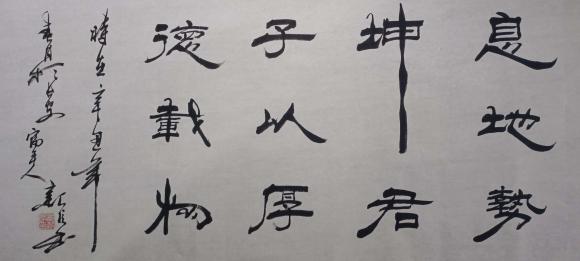 息地勢
坤君
子以厚
德載物
時在辛丑年
春月於长安富平人书